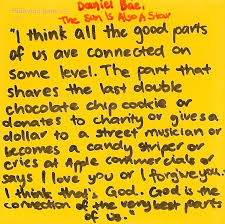 Daniel Bae,
The Sun Is Also A Star
"I think all the good parts
of us are connected on
some level. The part that
shares the last double
chocolate chip cookie or
donates to charity or gives a
dollar to a street musician or
becomes a candy striper or
cries at Apple commercials or
says I love you or I forgive you.
I think that's God. God is the
connection of the very best parts
of us."